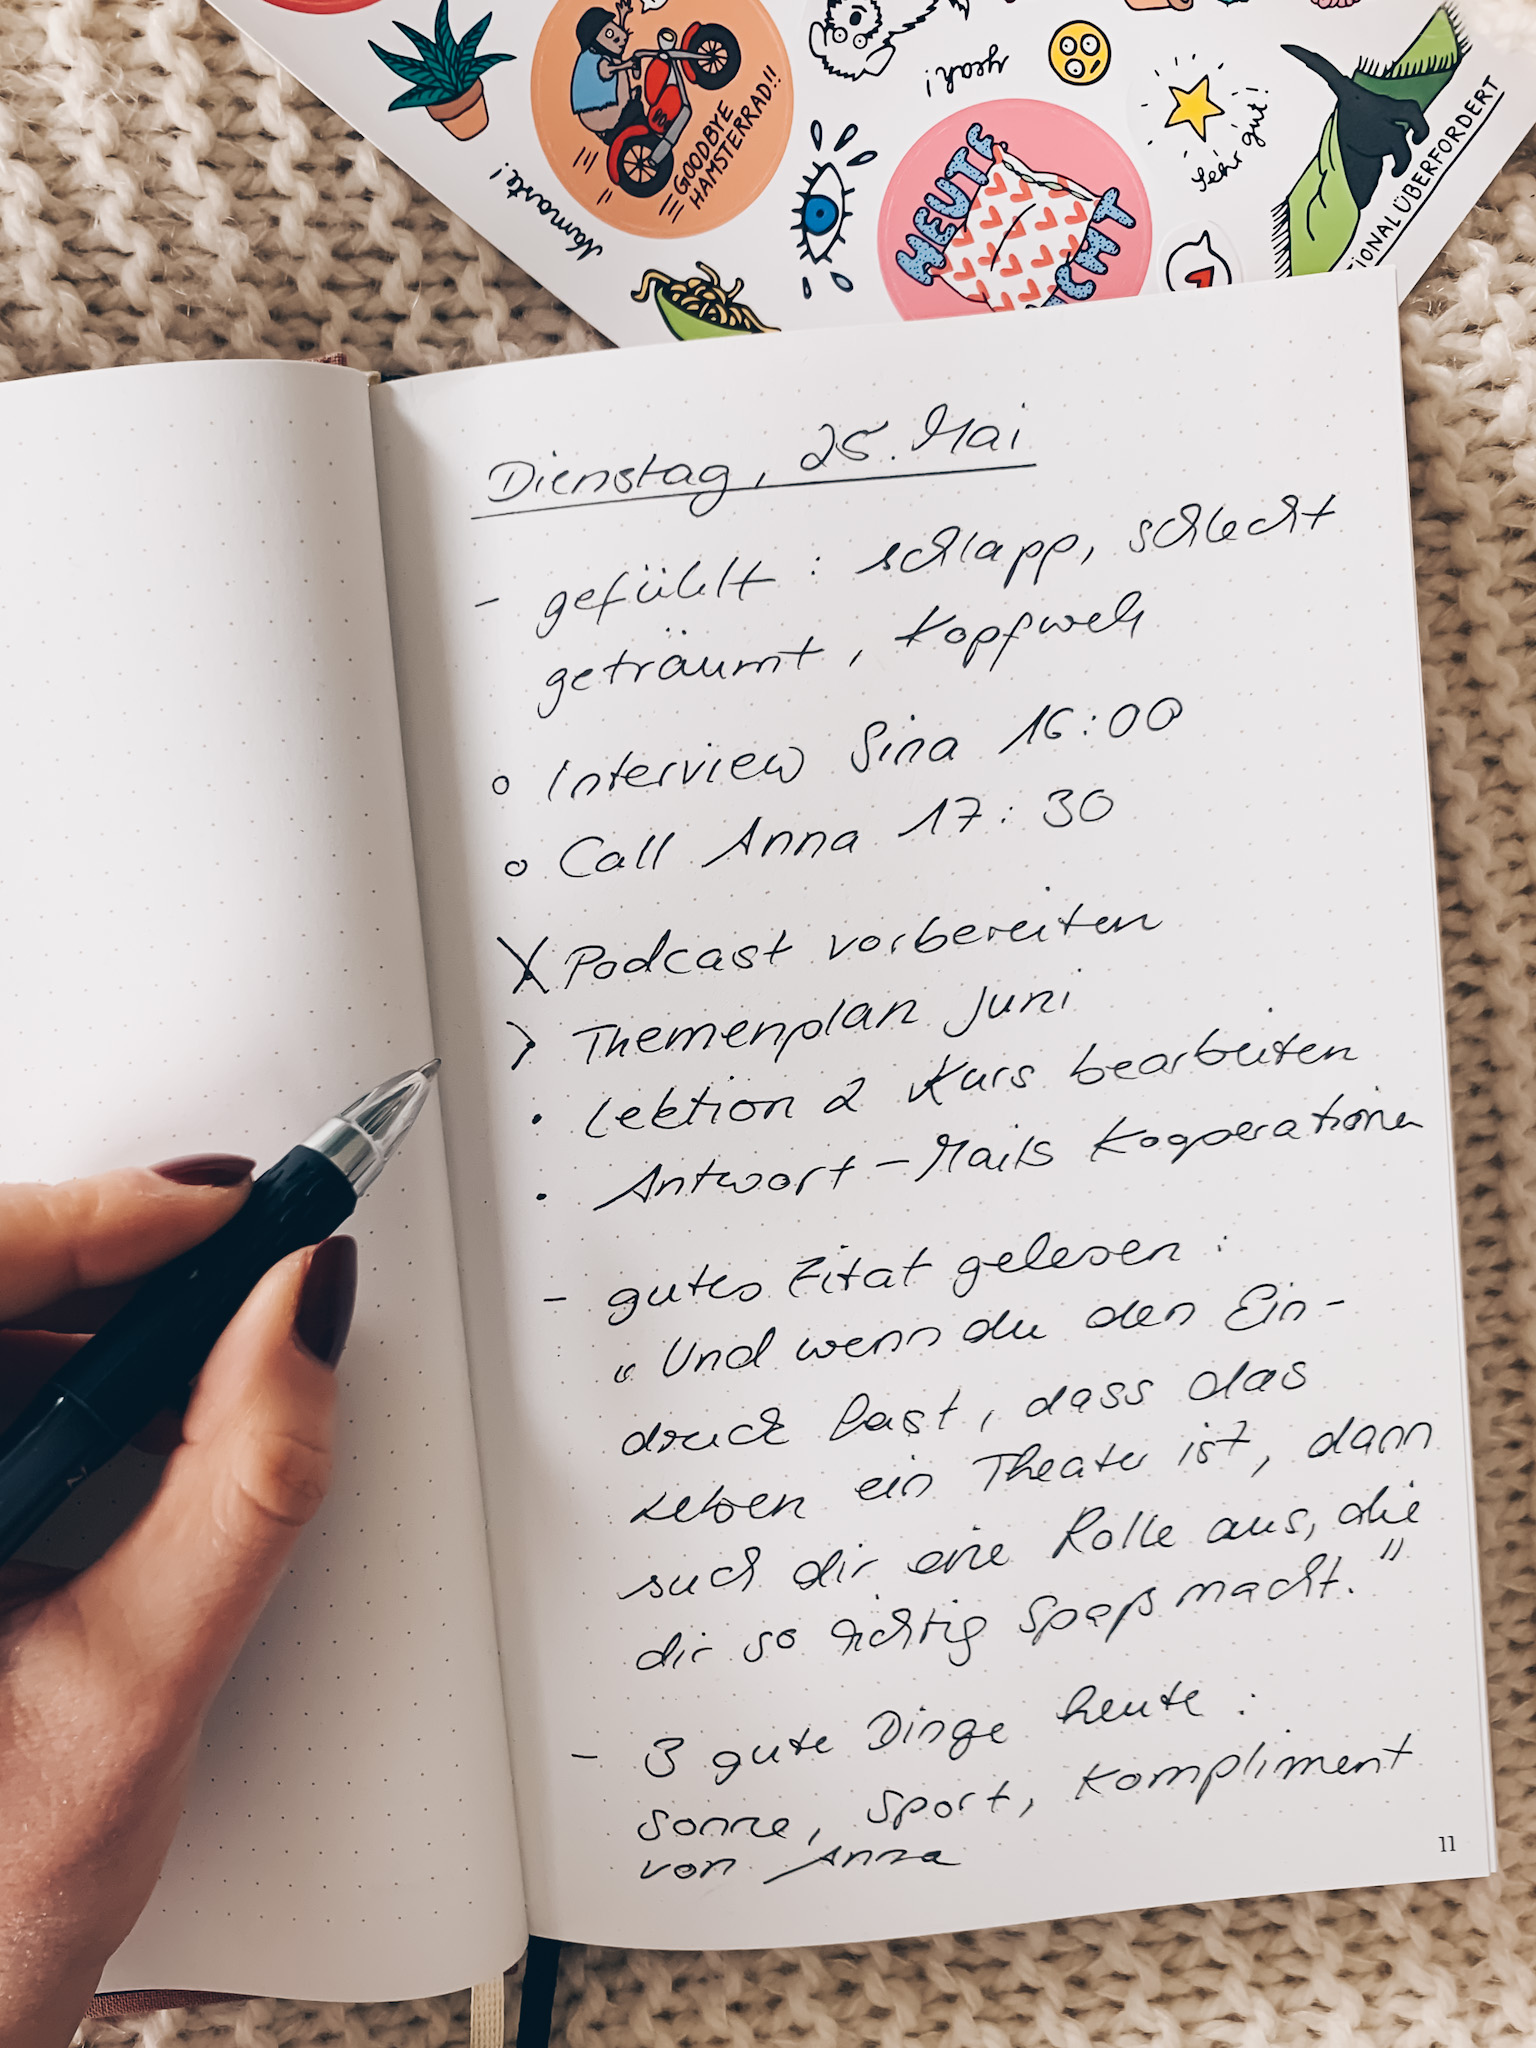 Namaste!
GOODBYE
HAMSTERRAD!!
yeah!
HEUTE
NICHT
Sehr gut!
TIONAL ÜBERFORDERT
Dienstag, 25. Mai
- gefühlt: schlapp, schlecht
geträumt, Kopfweh
o Interview Sina 16:00
o Call Anna 17:30
X Podcast vorbereiten
> Themenplan Juni
• Lektion 2 Kurs bearbeiten
• Antwort-Mails Kooperationen
- gutes Zitat gelesen:
"Und wenn du den Ein-
druck hast, dass das
Leben ein Theater ist, dann
such dir eine Rolle aus, die
dir so richtig Spaß macht."
- 3 gute Dinge heute:
Sonne, Sport, Kompliment
von Anna
11